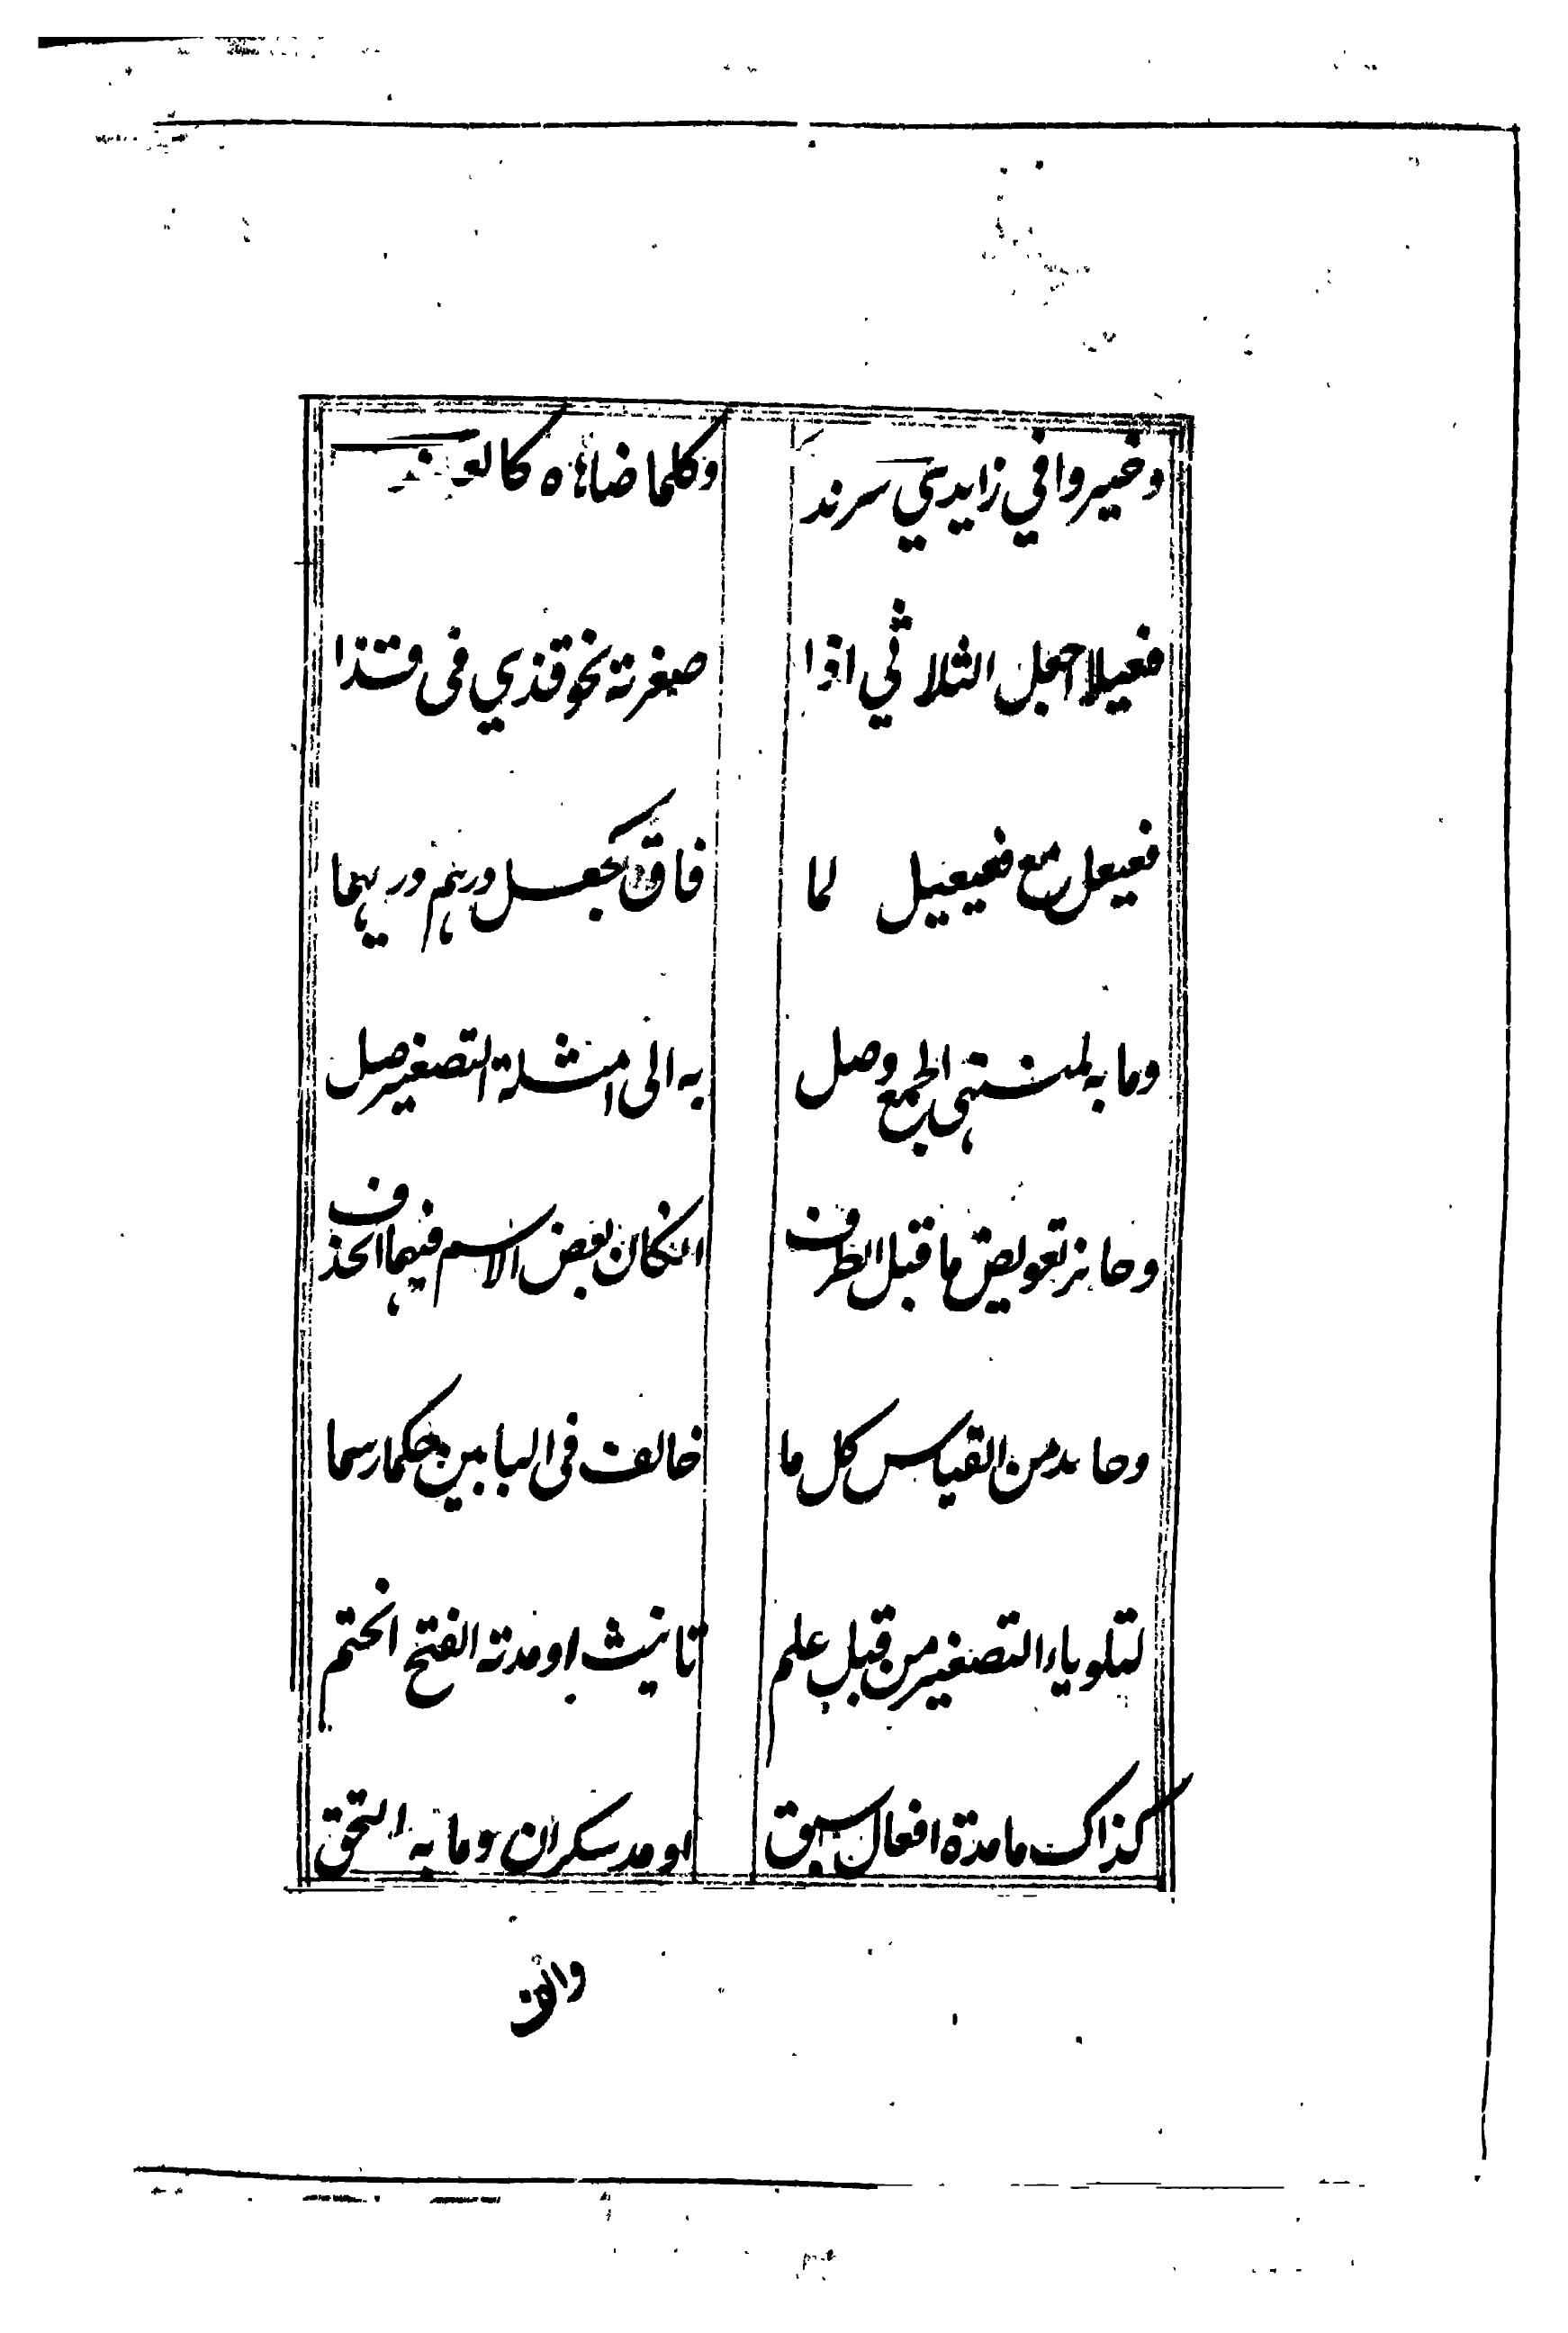 وخيروا في زايدي سرند وكلما ضاهاه كالعلند
فعيلا اجعل الثلاثي اذا صغرته نحو قذي في قذا
فعيعل مع فعيعيل لما فاق كجعل درهم دريهما
وما به لمنتهى الجمع وصل به الى امثلة التصغير صل
وجايز تعويض ما قبل الطرف انكان بعض الاسم فيهما انحذف
وحايد من القياس كل ما خالف في البابين حكما رسما
لتلو ياء التصغير من قبل علم تانيث او مدته الفتح انحتم
كذاك ما مدة افعال سبق او مد سكران وما به التحق
والف